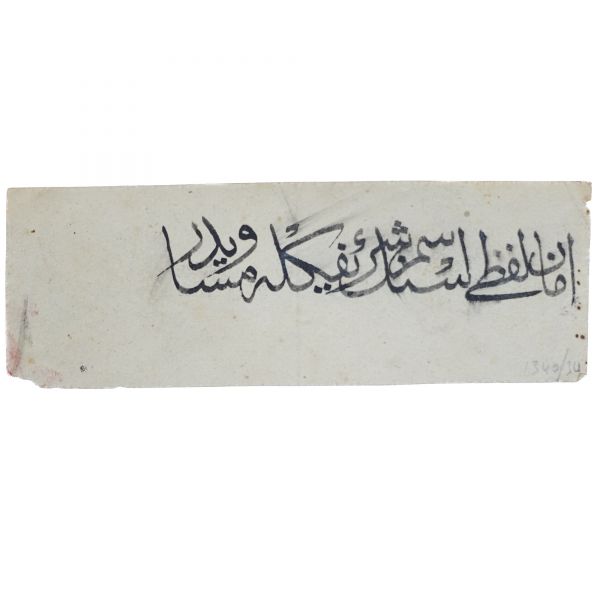 امان لفظی سنك اسم شریفكله مساویدر
1340/34